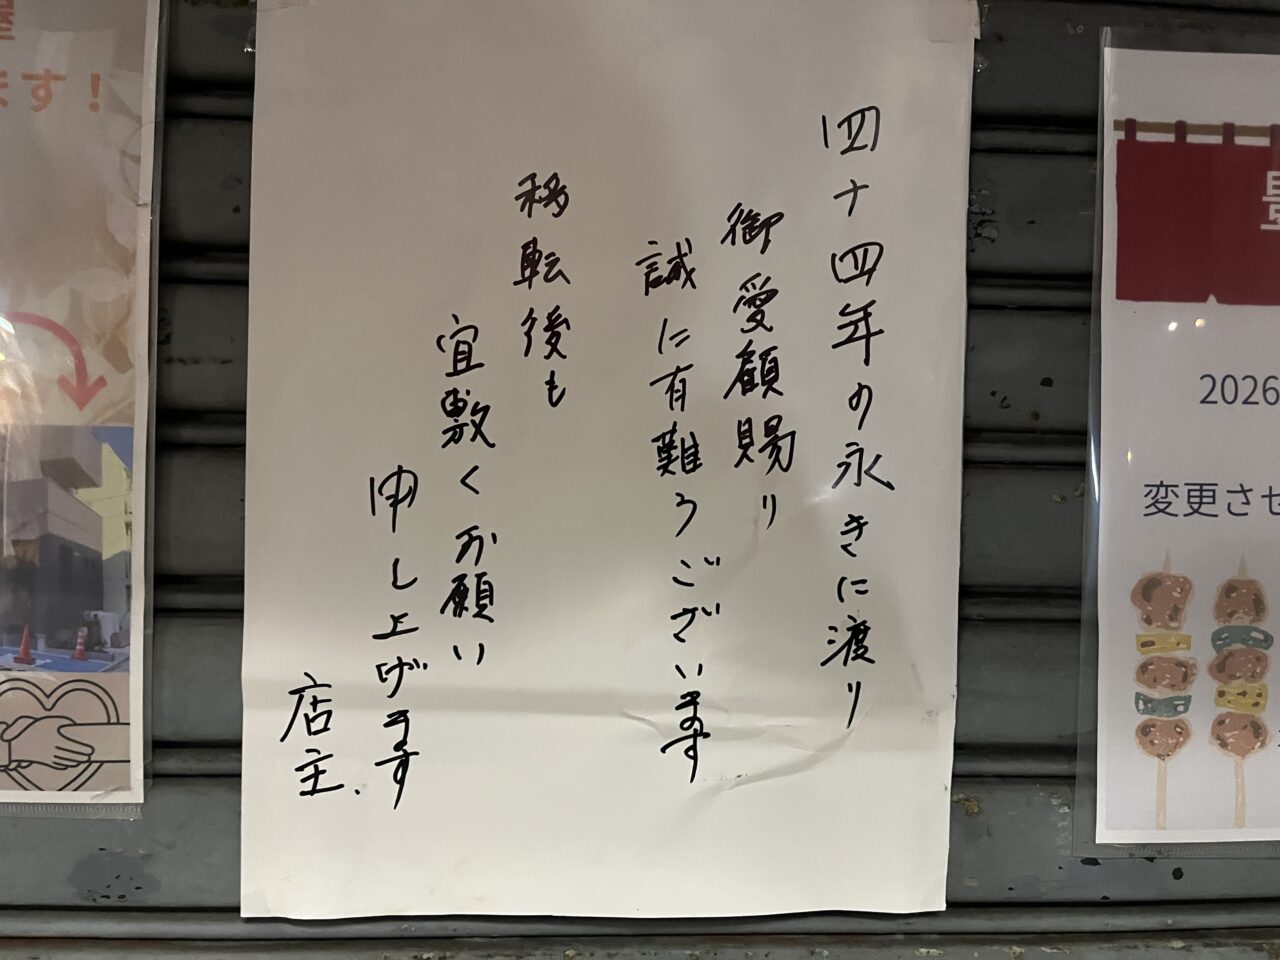 ます!
四十四年の永きに渡り
御愛顧賜り
誠に有難うございます
移転後も
宜敷くお願い
申し上げます
店主.
2026
変更させ